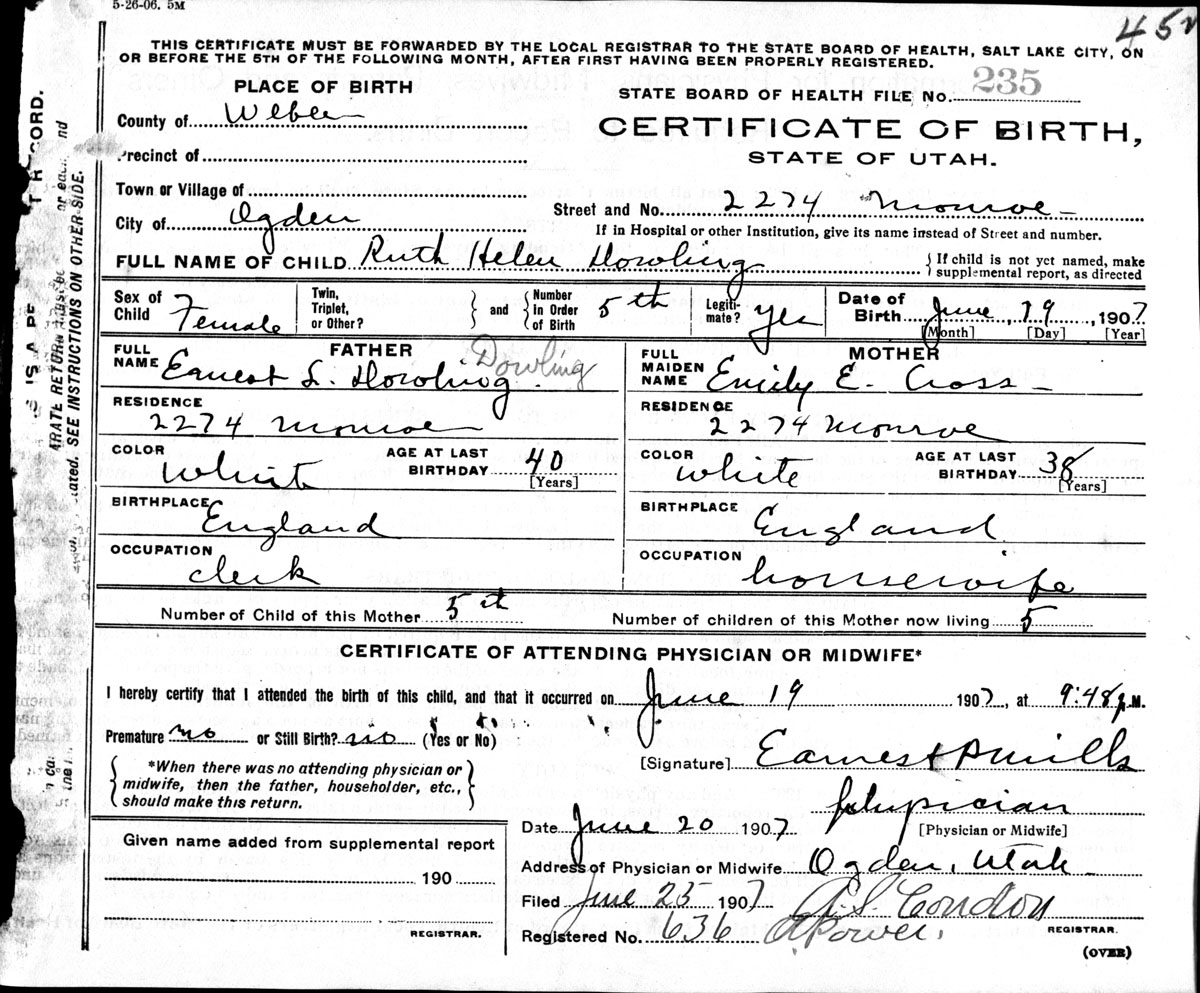 5-26-06. 5M
45
THIS CERTIFICATE MUST BE FORWARDED BY THE LOCAL REGISTRAR TO THE STATE BOARD OF HEALTH, SALT LAKE CITY, ON
OR BEFORE THE 5TH OF THE FOLLOWING MONTH, AFTER FIRST HAVING BEEN PROPERLY REGISTERED.
PLACE OF BIRTH
STATE BOARD OF HEALTH FILE NO. 235
County of Weber
CERTIFICATE OF BIRTH,
STATE OF UTAH.
Precinct of
Town or Village of
Street and No. 2274 Monroe
City of Ogden
If in Hospital or other Institution, give its name instead of Street and number.
FULL NAME OF CHILD Ruth Helen Dowling
If child is not yet named, make
supplemental report, as directed
Sex of Child Female
Twin, Triplet, or Other? and Number in Order of Birth 5th
Legitimate? yes
Date of Birth June, 19, 1907
[Month] [Day] [Year]
FATHER
FULL NAME Earnest L. Dowling. Dowling
RESIDENCE
2274 Monroe
COLOR White
AGE AT LAST BIRTHDAY 40
[Years]
BIRTHPLACE
England
OCCUPATION
clerk
MOTHER
FULL MAIDEN NAME Emily E. Cross
RESIDENCE
2274 Monroe
COLOR White
AGE AT LAST BIRTHDAY 38
[Years]
BIRTHPLACE
England
OCCUPATION
housewife
Number of Child of this Mother 5th
Number of children of this Mother now living 5
CERTIFICATE OF ATTENDING PHYSICIAN OR MIDWIFE*
I hereby certify that I attended the birth of this child, and that it occurred on June 19 1907, at 9:48 p.M.
Premature no or Still Birth? no (Yes or No)
[Signature] Earnest P Mills
*When there was no attending physician or
midwife, then the father, householder, etc.,
should make this return.
physician
[Physician or Midwife]
Date June 20 1907
Given name added from supplemental report
190
REGISTRAR.
Address of Physician or Midwife Ogden, Utah
Filed June 25 1907 A. S. Condon
REGISTRAR.
Registered No. 636
(OVER)
SEE INSTRUCTIONS ON OTHER SIDE.